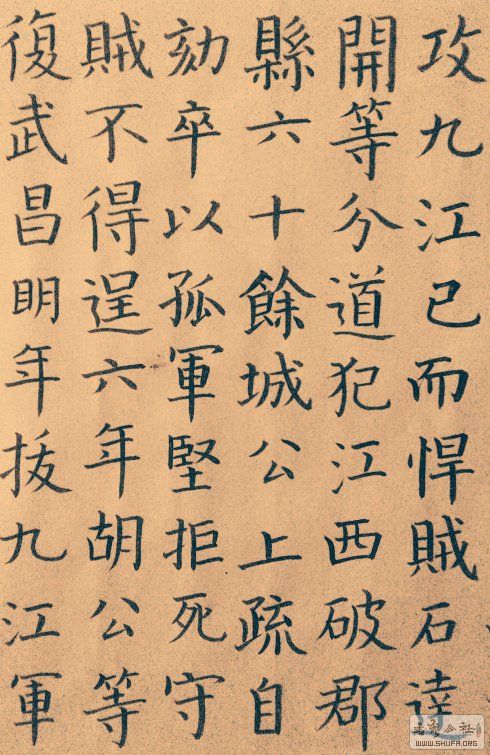 攻九江已而悍賊石達
開等分道犯江西破郡
縣六十餘城公上疏自
劾卒以孤軍堅拒死守
賊不得逞六年胡公等
復武昌明年拔九江軍
WWW.SHUFA.ORG